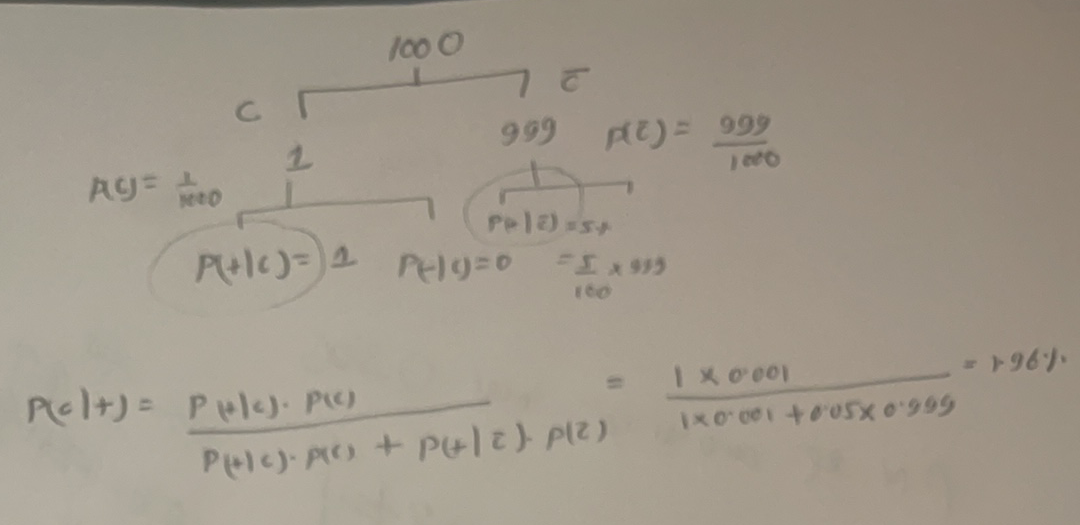 1000
C C̄
1 999 P(C̄) = 999/1000
P(C) = 1/1000
P(+|C̄) = 5%
P(+|C) = 1 P(-|C) = 0 = 5/100 × 999
P(C|+) = P(+|C)·P(C) / P(+|C)·P(C) + P(+|C̄)·P(C̄) = 1×0.001 / 1×0.001 + 0.05×0.999 = 1.96%